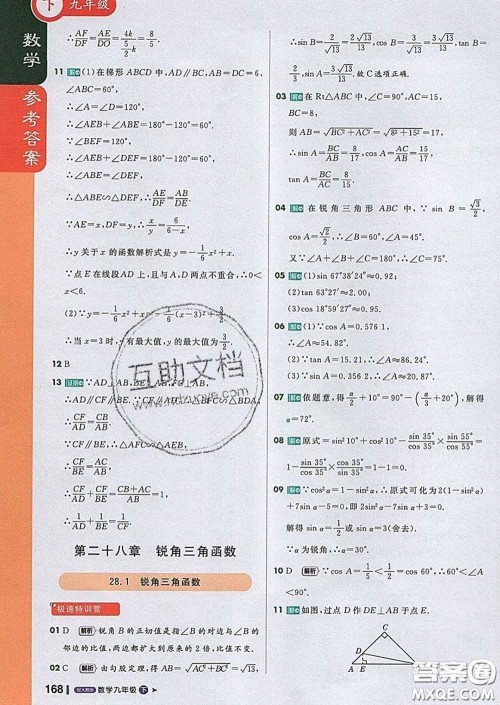 下 九年级
数学
参考答案
∴AF/DF=AE/DA=4k/(5/2 k)=8/5.
11 解:(1)在梯形 ABCD 中,AD∥BC,AB=DC=6,
∠ABC=60°,
∴∠A=∠D=120°.
∴∠AEB+∠ABE=180°-120°=60°.
∴∠AEB+∠DEF=180°-120°=60°,
∴∠ABE=∠DEF.
∴△ABE∽△DEF.∴AE/DF=AB/DE.
∵AE=x,DF=y,∴x/y=6/(6-x).
∴y关于x的函数解析式是y=-1/6x²+x.
∵点E在线段AD上,且与A,D两点不重合,∴0<
x<6.
(2)∵y=-1/6x²+x=-1/6(x-3)²+3/2,
∴当x=3时,y有最大值,y的最大值为3/2.
12 B
13 证明:∵AD⊥AB,BE⊥AB,FC⊥AB,
∴AD∥FC∥BE.∵CF∥AD,∴△BFC∽△BDA,
∴CF/AD=CB/AB.
∵CF∥BE,∴△AFC∽△AEB,
∴CF/BE=AC/AB.
∴CF/AD+CF/BE=(CB+AC)/AB=1.
∴1/AD+1/BE=1/CF.
第二十八章 锐角三角函数
28.1 锐角三角函数
极速特训营
01 D 解析 锐角B的正切值是指∠B的对边与∠B的
邻边的比值,两边都扩大到原来的2倍,比值不变.
02 C 解析 由勾股定理,得AB=√(AC²+BC²)=√13,
∴cos A=3/√13=3√13/13,
sin A=2/√13=2√13/13.故C选项正确.
03 解:在Rt△ABC中,∠C=90°,AC=15,
BC=8,
则AB=√(BC²+AC²)=√(8²+15²)=17.
sin A=BC/AB=8/17,cos A=AC/AB=15/17,
tan A=BC/AC=8/15.
04 解:在锐角三角形ABC中,∵sin B=√3/2,
cos A=√2/2,∴∠B=60°,∠A=45°.
又∵∠A+∠B+∠C=180°,∴∠C=75°.
05 解:(1)sin 67°38′24″≈0.92;
(2)tan 63°27′≈2.00;
(3)cos 18°59′27″≈0.95.
06 解:(1)∵cos A=0.576 1,
∴∠A≈54.82°.
(2)∵tan A=15.21,∴∠A≈86.24°.
(3)∵sin A=0.654 4,∴∠A≈40.88°.
07 解:依题意,得α/2+10°=90°-(α/3+20°),解得
α=72°.
08 解:原式=sin²10°+cos²10°-sin 35°/cos 35°·cos 35°/sin 35°=
1-sin 35°/cos 35°·cos 35°/sin 35°=0.
09 解:∵cos²α=1-sin²α,∴原式可化为2(1-sin²α)
+7sin α-5=0.
解得sin α=1/2或sin α=3(舍去).
∵α为锐角,∴α=30°.
10 D 解析 ∵cos α=1/5<1/2=cos 60°,∴60°<
α<90°.
11 解:如图,过点A作DE⊥AB交BC于点E,
互助文档
168 配人教版 数学九年级 下
答案圈
MXQE.COM